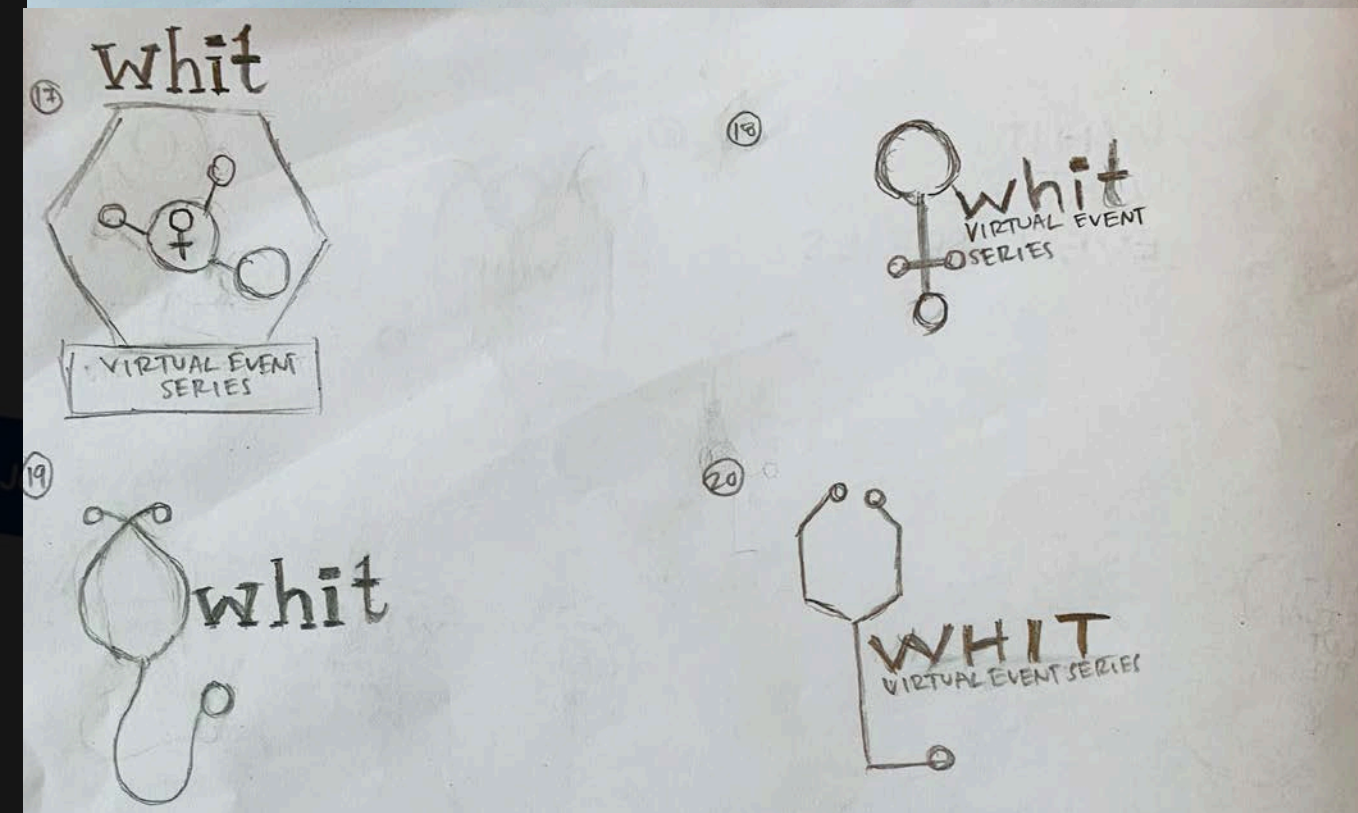 17
Whit
VIRTUAL EVENT
SERIES
18
whit
VIRTUAL EVENT
SERIES
19
whit
20
WHIT
VIRTUAL EVENT SERIES